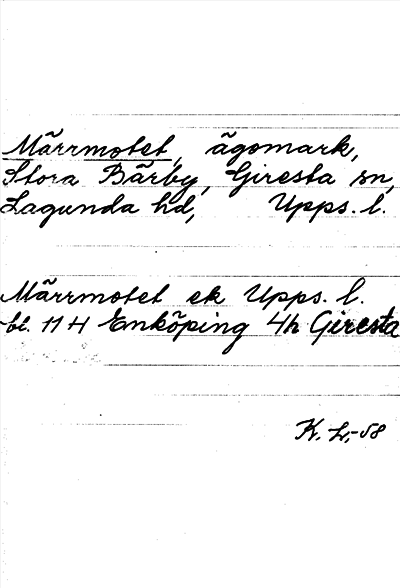 Märrmotet, ägomark,
Stora Bärby, Giresta sn,
Lagunda hd, Upps. l.
Märrmotet ek Upps. l.
bl. 11 H Enköping 4h Giresta
K. L.-58